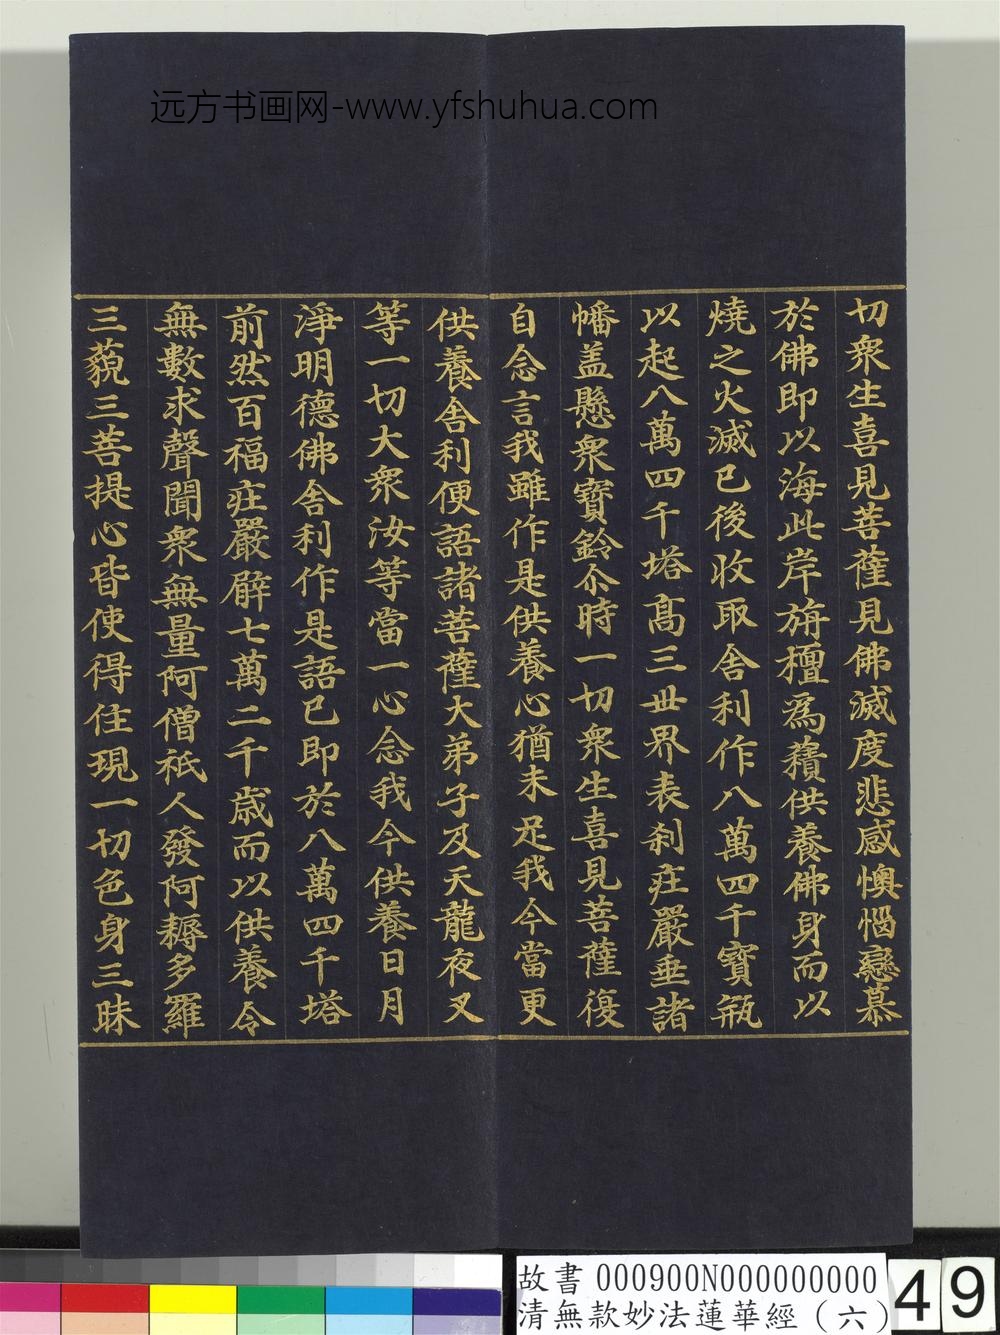 远方书画网-www.yfshuhua.com
切衆生喜見菩薩見佛滅度悲感懊惱戀慕
於佛即以海此岸旃檀為𧂐供養佛身而以
燒之火滅已後收取舍利作八萬四千寶瓶
以起八萬四千塔髙三世界表刹庄嚴垂諸
幡盖懸衆寶鈴尒時一切衆生喜見菩薩復
自念言我雖作是供養心猶未足我今當更
供養舍利便語諸菩薩大弟子及天龍夜叉
等一切大衆汝等當一心念我今供養日月
淨明德佛舍利作是語已即於八萬四千塔
前然百福庄嚴臂七萬二千歲而以供養令
無數求聲聞衆無量阿僧祇人發阿耨多羅
三藐三菩提心皆使得住現一切色身三昧
故書 000900N000000000
清無款妙法蓮華經（六）
49